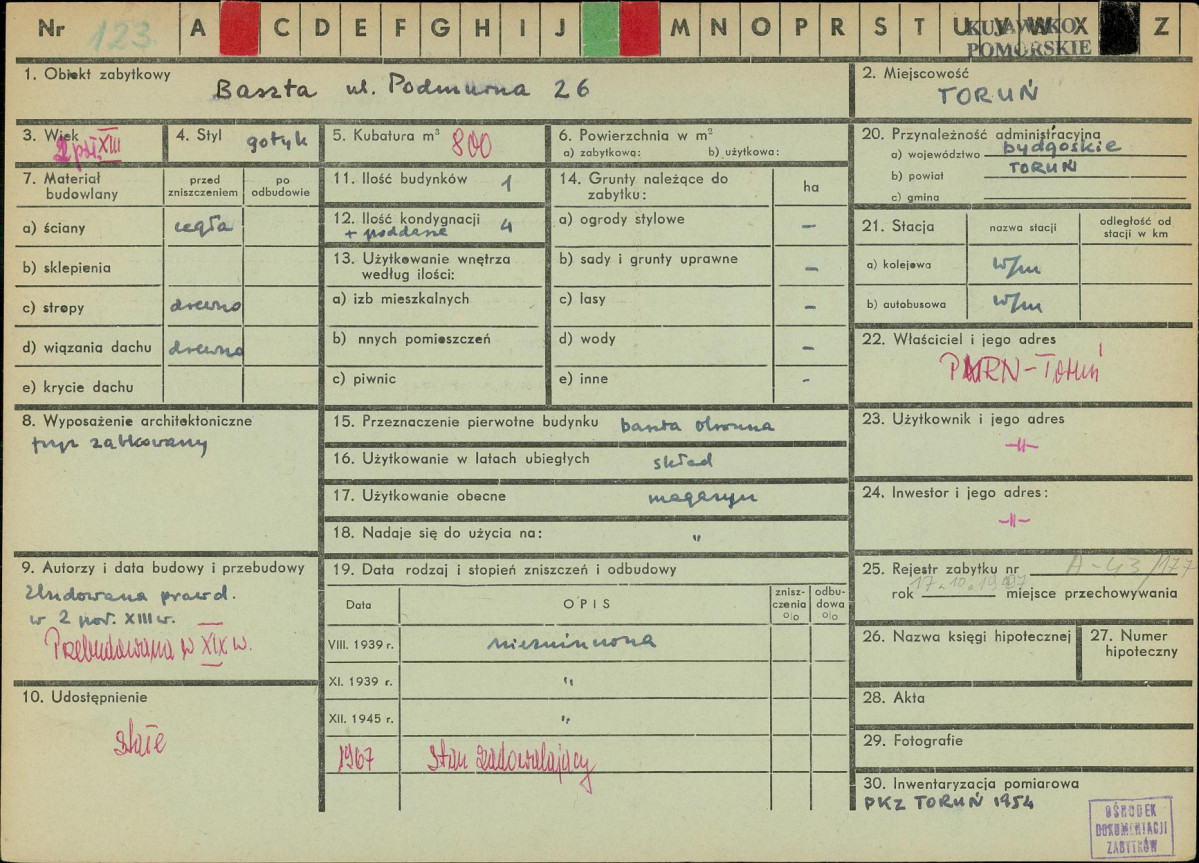 Nr 123. A C D E F G H I J M N O P R S T U W X Z
KUJAWSKO-
POMORSKIE
1. Obiekt zabytkowy
Baszta ul. Podmurna 26
2. Miejscowość
TORUŃ
3. Wiek
2 poł. XIII
4. Styl gotyk
5. Kubatura m³ 800
6. Powierzchnia w m²
a) zabytkową: b) użytkową:
7. Materiał budowlany
przed zniszczeniem
po odbudowie
a) ściany cegła
b) sklepienia
c) stropy drewno
d) wiązania dachu drewno
e) krycie dachu
8. Wyposażenie architektoniczne
fryz ząbkowany
9. Autorzy i data budowy i przebudowy
Zbudowana prawd.
w 2 poł. XIII w.
Przebudowana w XIX w.
10. Udostępnienie
stałe
11. Ilość budynków 1
12. Ilość kondygnacji 4
+ poddasze
13. Użytkowanie wnętrza
według ilości:
a) izb mieszkalnych
b) nnych pomieszczeń
c) piwnic
14. Grunty należące do
zabytku:
ha
a) ogrody stylowe –
b) sady i grunty uprawne –
c) lasy –
d) wody –
e) inne -
15. Przeznaczenie pierwotne budynku baszta obronna
16. Użytkowanie w latach ubiegłych skład
17. Użytkowanie obecne magazyn
18. Nadaje się do użycia na: "
19. Data rodzaj i stopień zniszczeń i odbudowy
Data
OPIS
znisz-
czenia
%
odbu-
dowa
%
VIII. 1939 r. niezniszczona
XI. 1939 r. "
XII. 1945 r. "
1967 Stan zadowalający
20. Przynależność administracyjna
a) województwo bydgoskie
b) powiat TORUŃ
c) gmina
21. Stacja
nazwa stacji
odległość od
stacji w km
a) kolejowa w/m
b) autobusowa w/m
22. Właściciel i jego adres
PMRN-Toruń
23. Użytkownik i jego adres
-"-
24. Inwestor i jego adres:
-"-
25. Rejestr zabytku nr A-43/177
rok 17.10.1997 miejsce przechowywania
26. Nazwa księgi hipotecznej
27. Numer
hipoteczny
28. Akta
29. Fotografie
30. Inwentaryzacja pomiarowa
PKZ TORUŃ 1954
OŚRODEK
DOKUMENTACJI
ZABYTKÓW